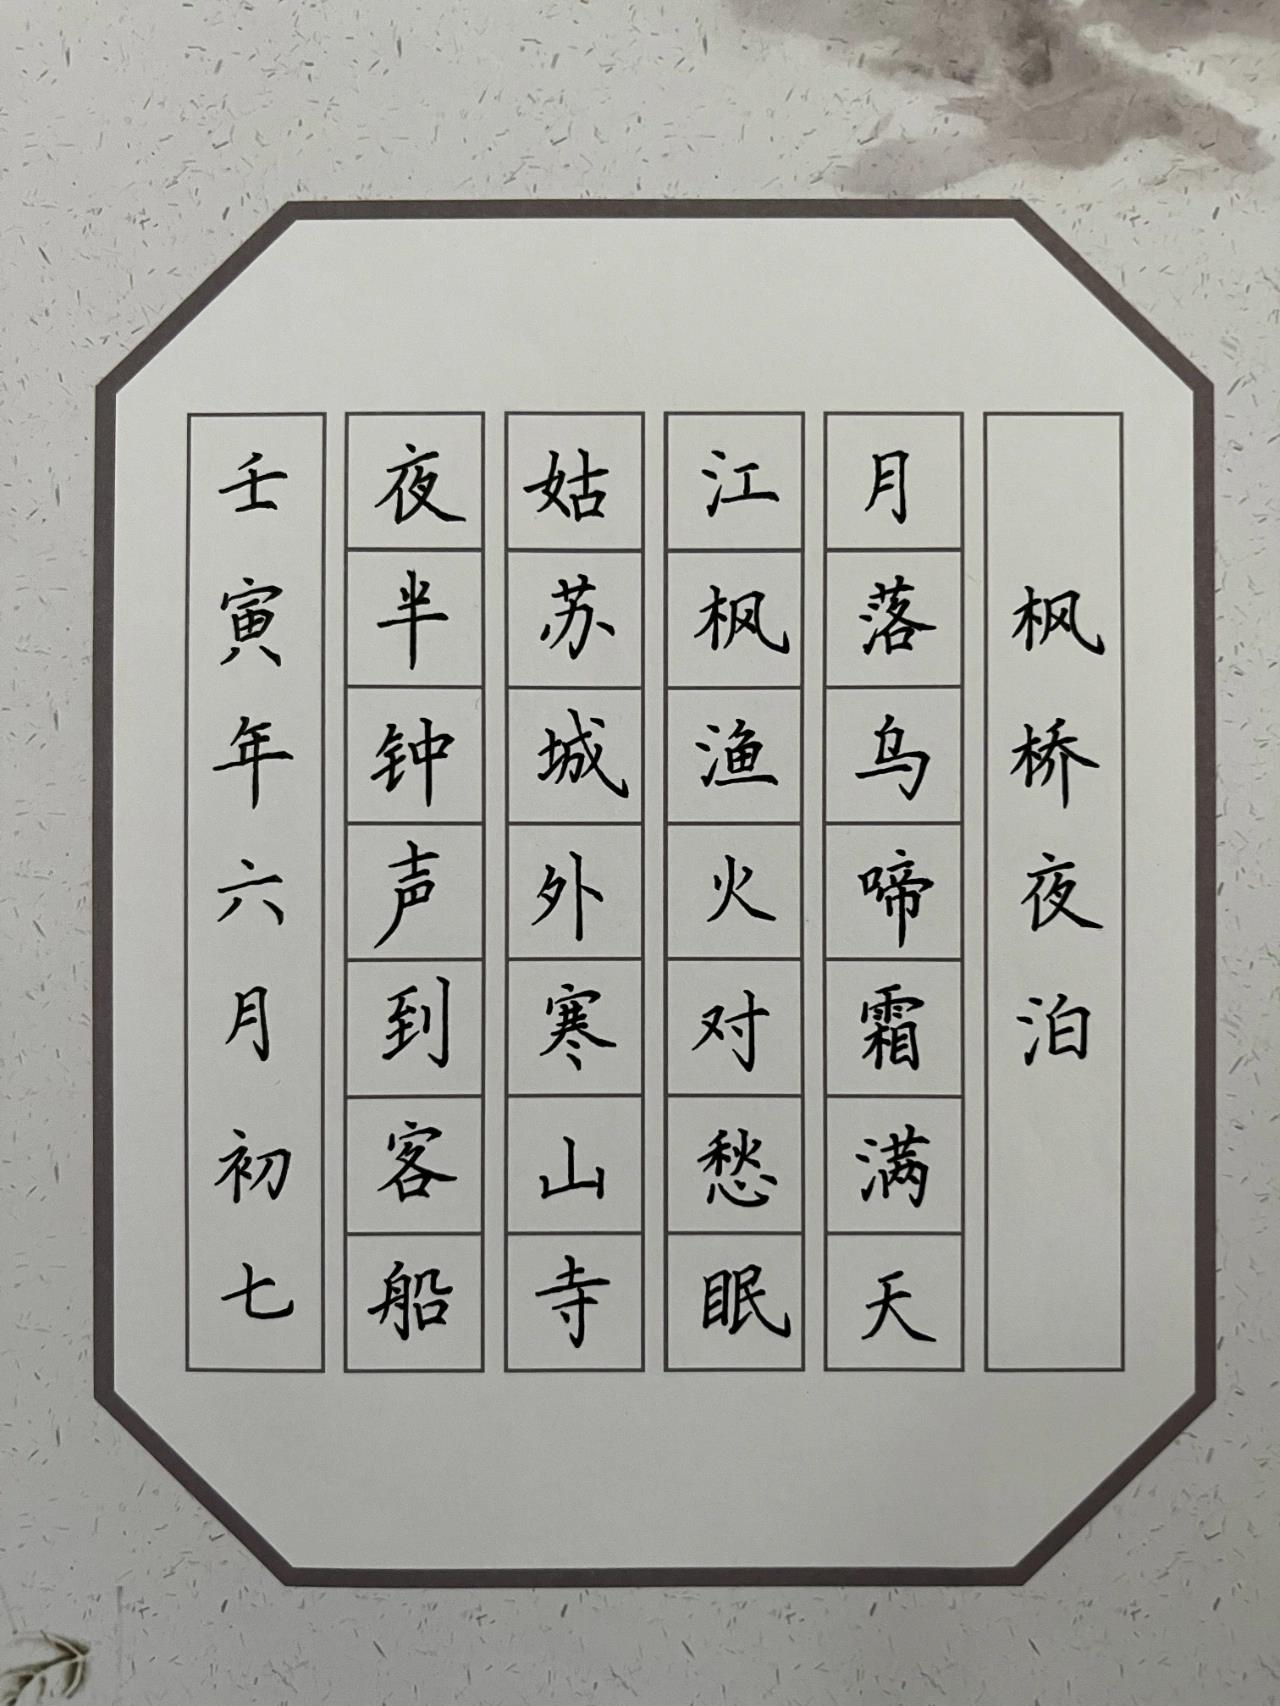 枫桥夜泊
月落乌啼霜满天
江枫渔火对愁眠
姑苏城外寒山寺
夜半钟声到客船
壬寅年六月初七